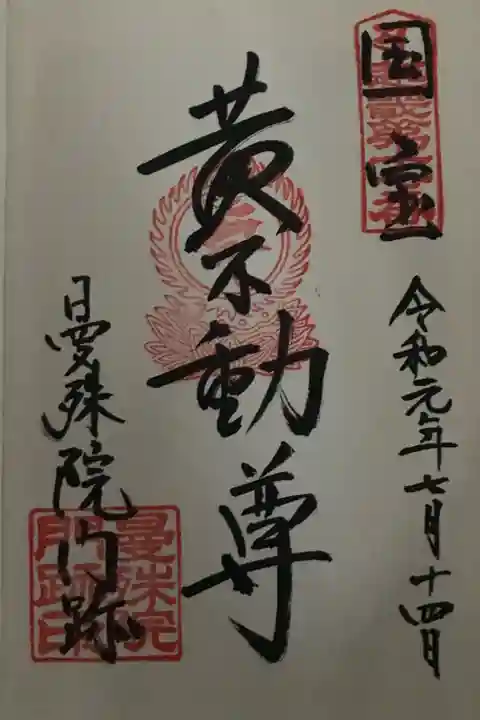 国宝
令和元年七月十四日
黄不動尊
曼殊院门跡
曼殊院
門跡印